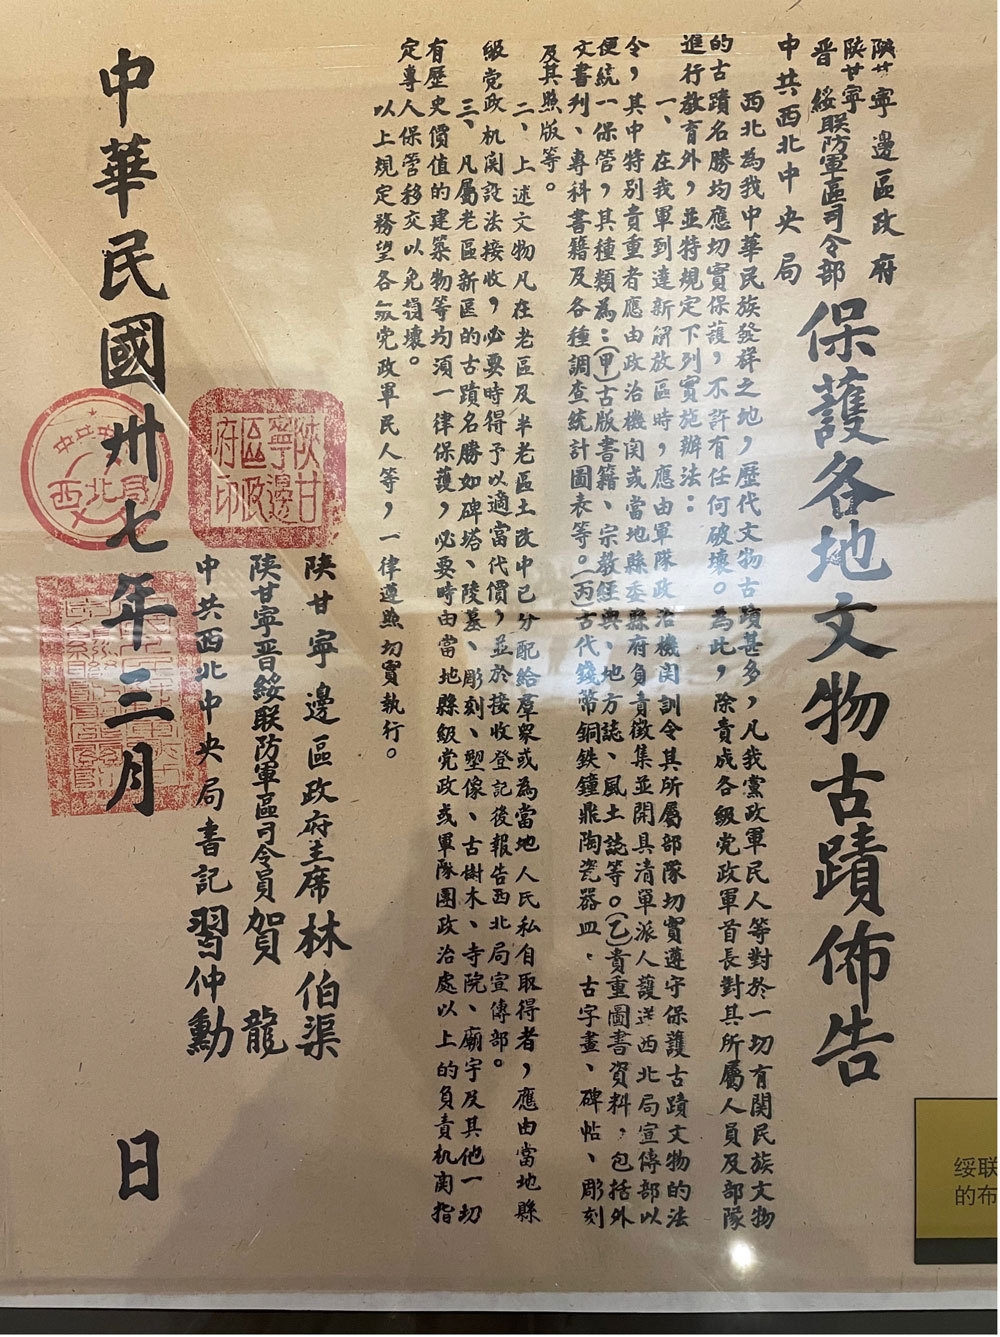 陝甘寧邊區政府
陝甘寧晉綏联防軍區司令部
中共西北中央局
保護各地文物古蹟佈告
西北為我中華民族發祥之地，歷代文物古蹟甚多，凡我黨政軍民人等對於一切有関民族文物
的古蹟名勝均應切實保護，不許有任何破壞。為此，除責成各級党政軍首長對其所屬人員及部隊
進行教育外，並特規定下列實施辦法：
一、在我軍到達新解放區時，應由軍隊政治機関訓令其所屬部隊切實遵守保護古蹟文物的法
令，其中特別貴重者應由政治機関或當地縣委縣府負責徵集並開具清單派人護送西北局宣傳部以
便統一保管，其種類為：(甲)古版書籍、宗教經典、地方誌、風土誌等。(乙)貴重圖書資料，包括外
文書刊、專科書籍及各種調查統計圖表等。(丙)古代錢幣銅鉄鐘鼎陶瓷器皿、古字畫、碑帖、彫刻
及其照版等。
二、上述文物凡在老區及半老區土改中已分配給羣眾或為當地人民私自取得者，應由當地縣
級党政机関設法接收，必要時得予以適當代價，並於接收登記後報告西北局宣傳部。
三、凡屬老區新區的古蹟名勝如碑塔、陵墓、彫刻、塑像、古樹木、寺院、廟宇及其他一切
有歷史價值的建築物等均須一律保護，必要時由當地縣級党政或軍隊團政治處以上的負責机関指
定專人保管移交以免損壞。
以上規定務望各級党政軍民人等，一律遵照切實執行。
陝甘寧邊區政府主席林伯渠
陝甘寧晉綏联防軍區司令員賀龍
中共西北中央局書記習仲勳
陝甘寧邊區政府印
中共中央西北局
中華民國卅七年三月 日
绥联
的布